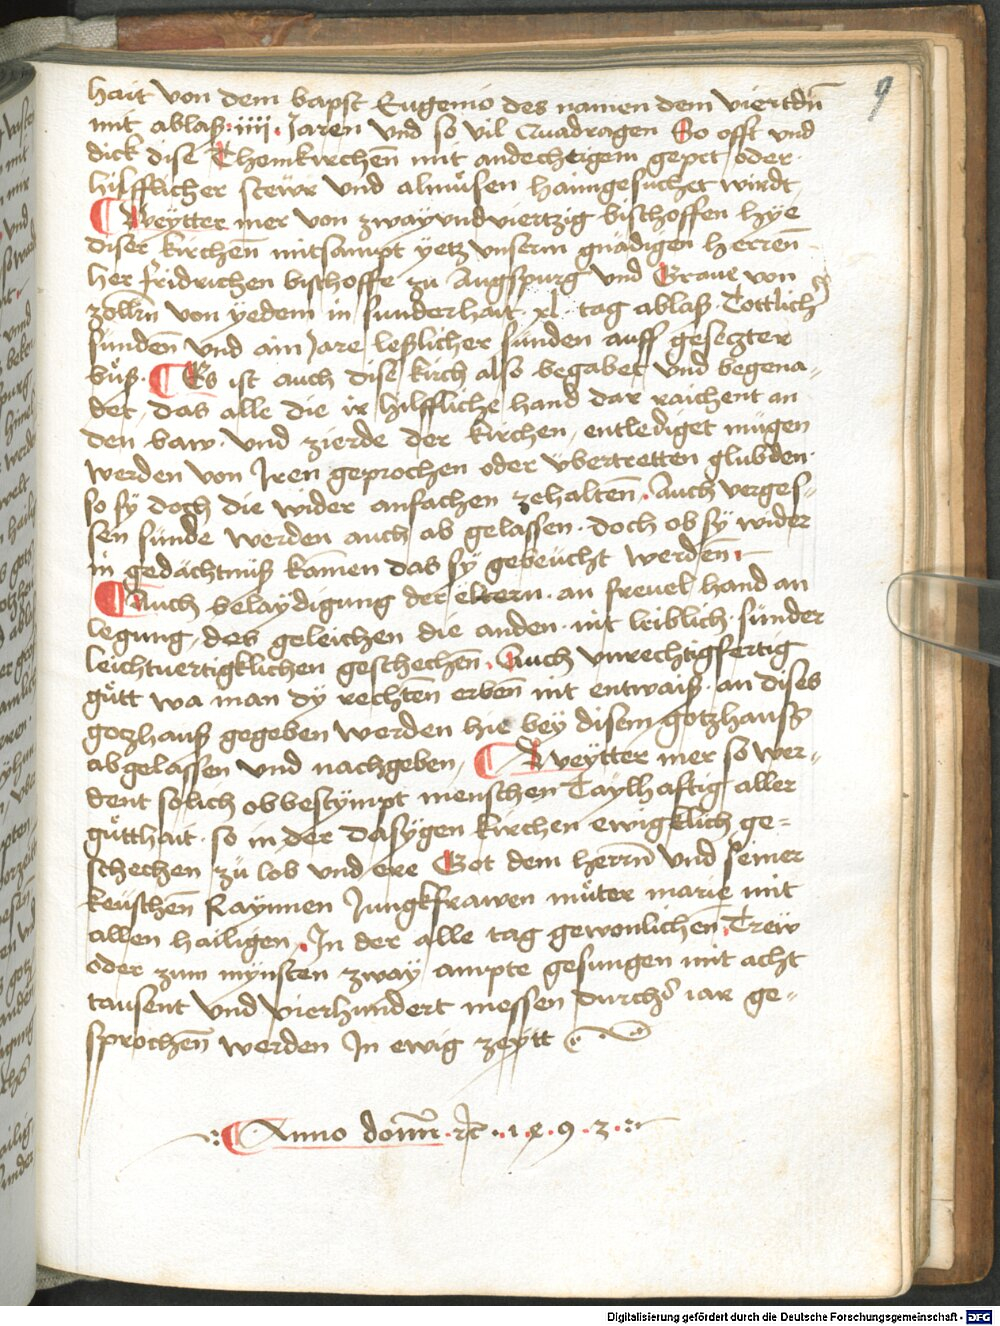 9
hait von dem bapst Eugenio des namen dem vierdñ
mit ablaß .iiii. Jaren vnd so vil Quadragen So offt vnd
dick dise Thomkirchen̄ mit andechtigem gepet oder
hilfflicher stewr vnd almůsen haimgesuchet wirdt
Weytter mer von zwayvndviertzig bischoffen hye
diser kirchen̄ mitsampt yetz vnserm gnadigen herren̄
her fridrichen bischoffe zu Augspurg vnd Graue von
zolln̄ von yedem in sunderhait .xl. tag ablaß Tottlicher
sunden̄ vnd ain Jare leßlicher sunden auff gesetzter
bůß. Es ist auch dise kirch also begabet vnd begena-
det, das alle die ir hilffliche hand dar raichent an
den baw. vnd zierde der kirchen, entlediget mügen
werden von Iren geprochen oder vbertretten glubden.
so sy doch die wider anfachen zehalten̄. Auch verges-
sen sunde werden auch ab gelassen. doch ob sy wider
in gedächtnüß kämen das sy gebeücht werden̄
Auch belaydigung der eltern. an freuel hand an
legung, des geleichen die anden. nit leiblich. sünder
leichtuertigklichen geschechen̄. Auch vnrechtigfertig
gůtt wa man dy rechten erben̄ nit entwaiß. an dises
gotzhauß gegeben werden hie bey disem gotzhauß
abgelassen vnd nachgeben, Weytter mer so wer-
dent solich obbestympt menschen Taylhaftig aller
gůtthait. so in der dasygen kirchen ewigklich ge-
schechen zů lob vnd ere Got dem herrn̄ vnd seiner
keüschen̄ Raynnen Jungkfrawen můter marie mit
allen hailigen. In der alle tag gewonlichen̄ Trew
oder zum mynsten zway ampte gesungen mit acht
tausent vnd vierhundert messen durchs iar ge-
sprochen̄ werden In ewig zeytt
Anno domī 1493
Digitalisierung gefördert durch die Deutsche Forschungsgemeinschaft - DFG